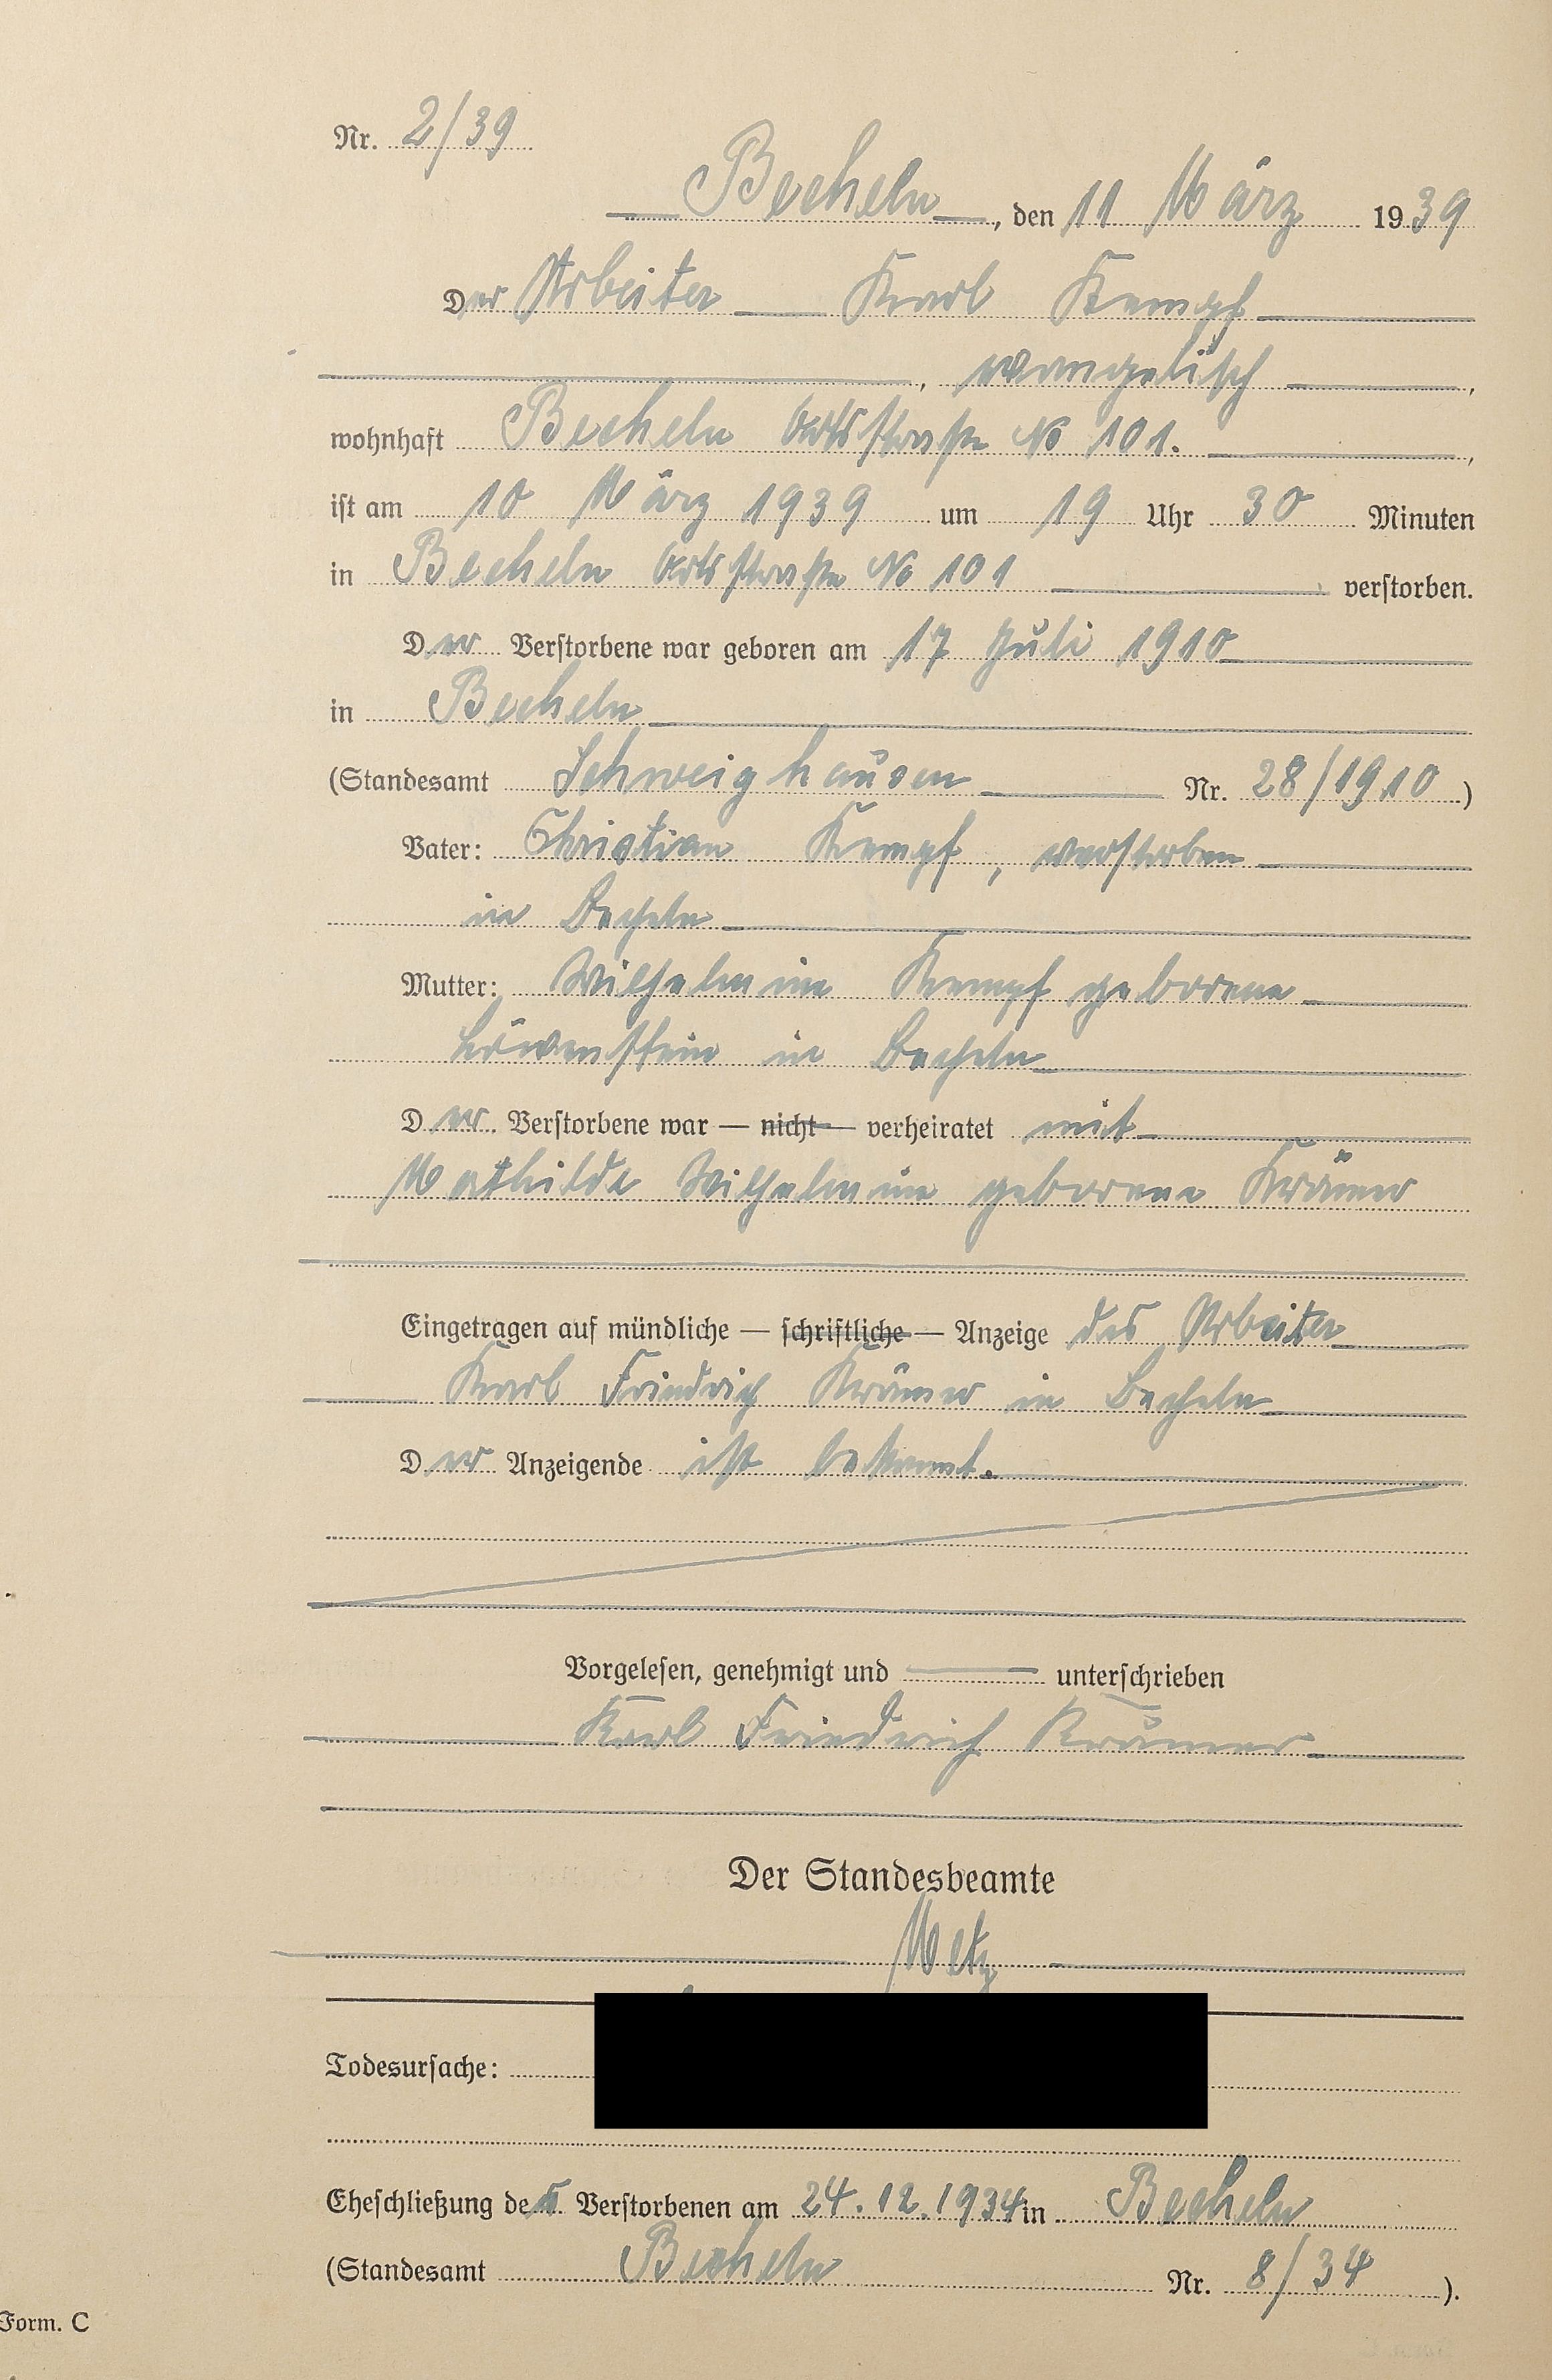 Nr. 2/39
Becheln, den 11 März 1939
Der Arbeiter Karl Kempf
, evangelisch,
wohnhaft Becheln Ortsstraße No 101.,
ist am 10 März 1939 um 19 Uhr 30 Minuten
in Becheln Ortsstraße No 101 verstorben.
Der Verstorbene war geboren am 17 Juli 1910
in Becheln
(Standesamt Schweighausen Nr. 28/1910)
Vater: Christian Kempf, verstorben
in Becheln
Mutter: Wilhelmine Kempf geborene
Löwenstein in Becheln
Der Verstorbene war — nicht — verheiratet mit
Mathilde Wilhelmine geborene Krämer
Eingetragen auf mündliche — schriftliche — Anzeige des Arbeiter
Karl Friedrich Krämer in Becheln
Der Anzeigende ist bekannt.
Vorgelesen, genehmigt und unterschrieben
Karl Friedrich Krämer
Der Standesbeamte
Metz
Todesursache:
Eheschließung des Verstorbenen am 24.12.1934 in Becheln
(Standesamt Becheln Nr. 8/34).
Form. C